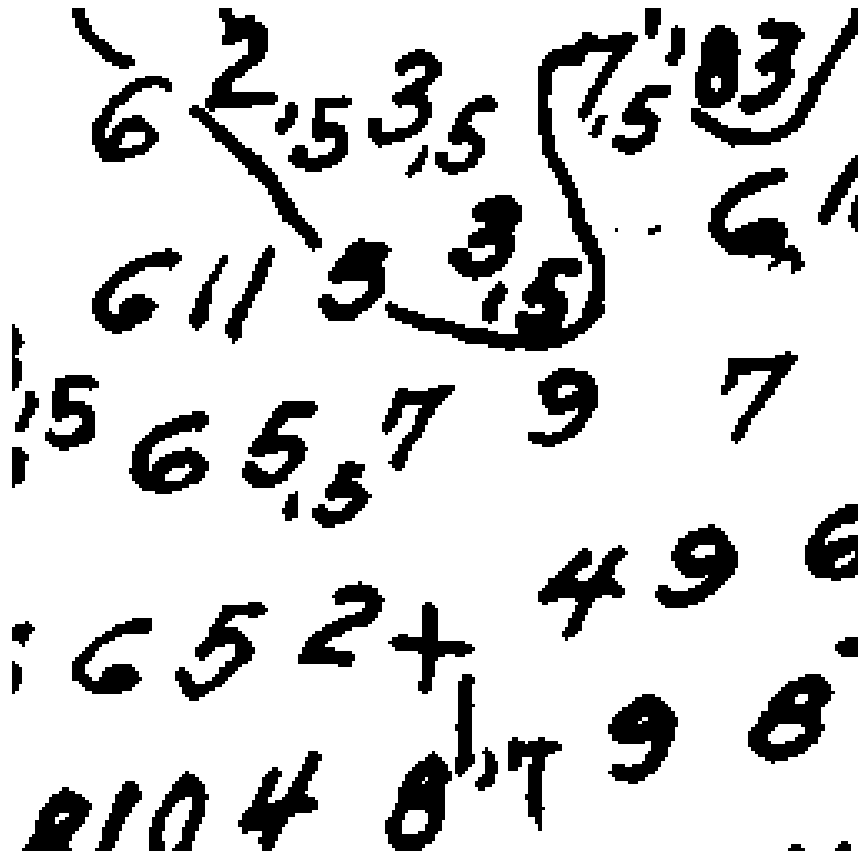 6 2,5 3,5 7,5 83
6 11 9 3,5 6
,5 6 5,5 7 9 7
6 5 2+ 4 9 6
8 10 4 8 1,7 9 8